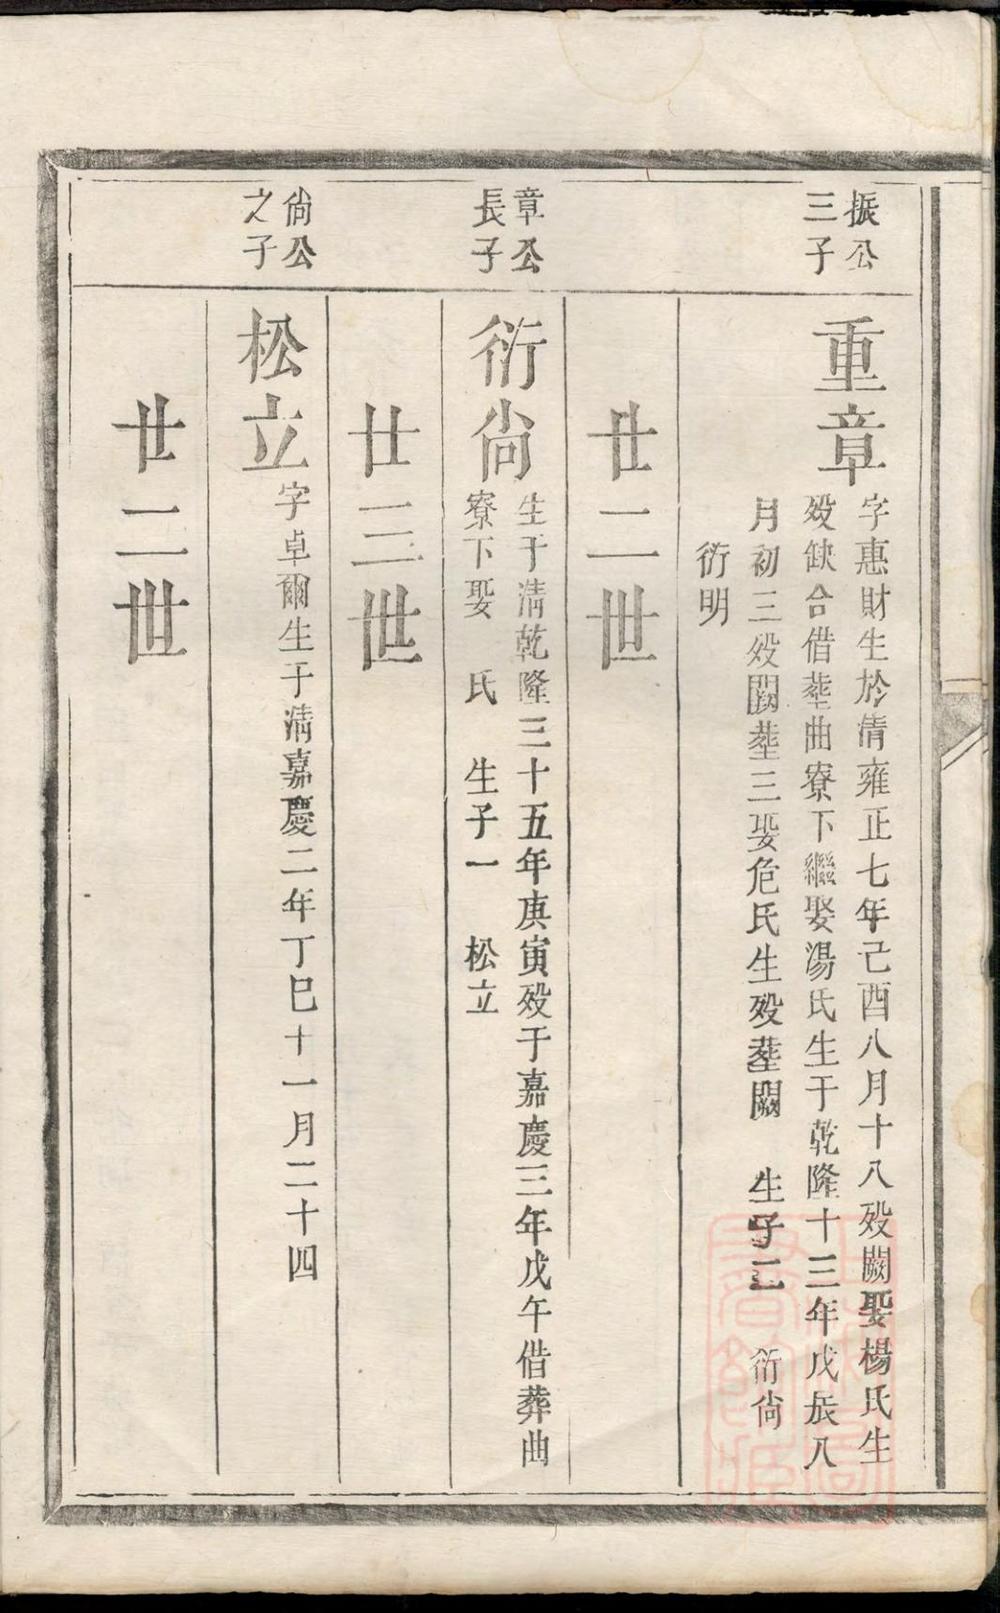 振公
三子
重章
字惠財生於清雍正七年己酉八月十八殁闕娶楊氏生
殁缺合借塟曲寮下繼娶湯氏生于乾隆十三年戊辰八
月初三殁闕塟三娶危氏生殁塟闕 生子二 衍尙
衍明
廿二世
章公
長子
衍尙
生于清乾隆三十五年庚寅殁于嘉慶三年戊午借葬曲
寮下娶 氏 生子一 松立
廿三世
尙公
之子
松立
字卓爾生于清嘉慶二年丁巳十一月二十四
廿二世